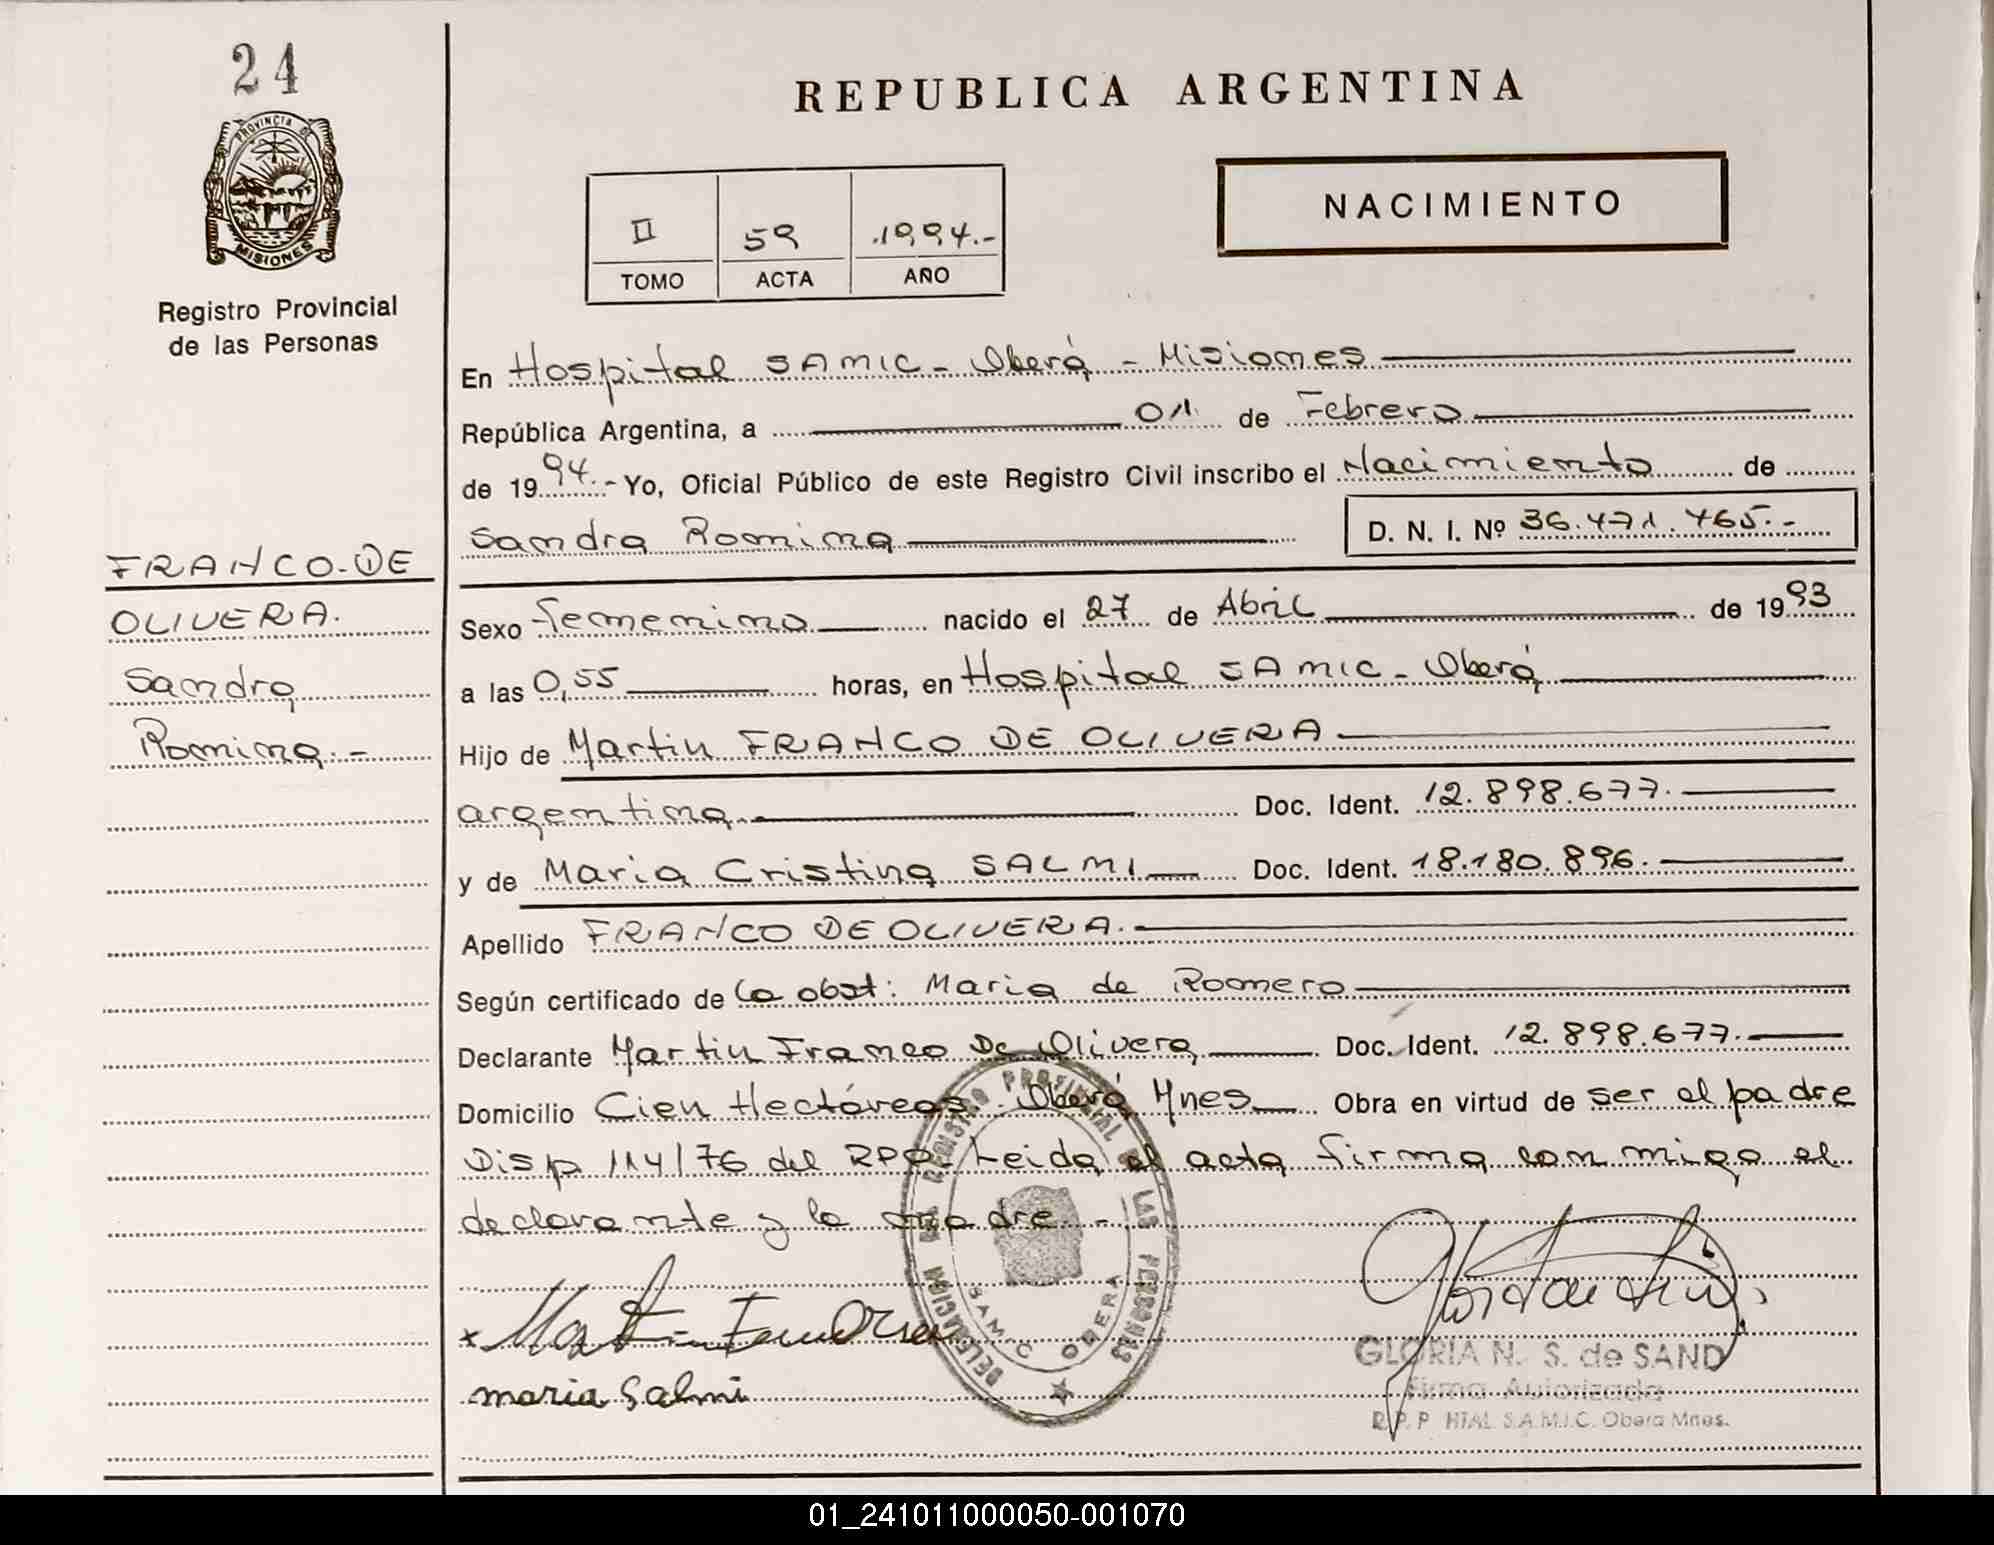 24
PROVINCIA DE
MISIONES
Registro Provincial
de las Personas
FRANCO-DE
OLIVERA.
Sandra
Romina.-
REPUBLICA ARGENTINA
NACIMIENTO
II 59 .1994.-
TOMO ACTA AÑO
En Hospital SAMIC - Oberá - Misiones
República Argentina, a 01 de Febrero
de 1994.- Yo, Oficial Público de este Registro Civil inscribo el Nacimiento de
Sandra Romina D. N. I. Nº 36.471.465.-
Sexo femenino nacido el 27 de Abril de 1993
a las 0,55 horas, en Hospital SAMIC - Oberá
Hijo de Martin FRANCO DE OLIVERA
argentina Doc. Ident. 12.898.677.
y de Maria Cristina SALMI Doc. Ident. 18.180.896.
Apellido FRANCO DE OLIVERA.
Según certificado de la obst: Maria de Romero
Declarante Martin Franco De Olivera Doc. Ident. 12.898.677.
Domicilio Cien Hectáreas. Oberá Mnes Obra en virtud de ser el padre
Disp 114/76 del RPP. Leida el acta firma conmigo el
declarante y la madre.-
DELEGACION DEL REGISTRO PROVINCIAL DE LAS PERSONAS
SAMIC OBERA
maria Salmi
GLORIA N. S. de SAND
Firma Autorizada
R.P.P HTAL S.A.M.I.C. Oberá Mnes.
01_241011000050-001070